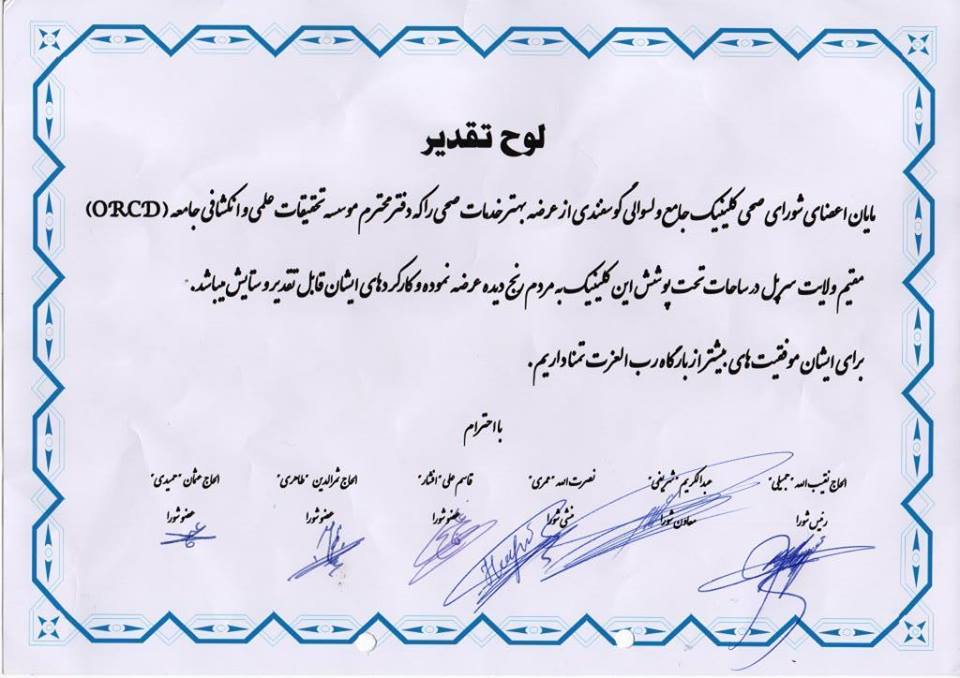 لوح تقدیر
مایان اعضای شورای صحی کلینیک جامع ولسوالی گوسفندی از عرضه بهتر خدمات صحی را که دفتر محترم موسسه تحقیقات علمی و انکشافی جامعه (ORCD)
مقیم ولایت سرپل در ساحات تحت پوشش این کلینیک به مردم رنج دیده عرضه نموده و کارکرد های ایشان قابل تقدیر و ستایش میباشد.
برای ایشان موفقیت های بیشتر از بارگاه رب العزت تمنا داریم.
با احترام
الحاج نقیب الله "جمیلی" عبدالکریم "شریفی" نصرت الله "عمری" قاسم علی "افشار" الحاج شرالدین "طاهری" الحاج عثمان "حمیدی"
رئیس شورا معاون شورا منشی شورا عضو شورا عضو شورا عضو شورا